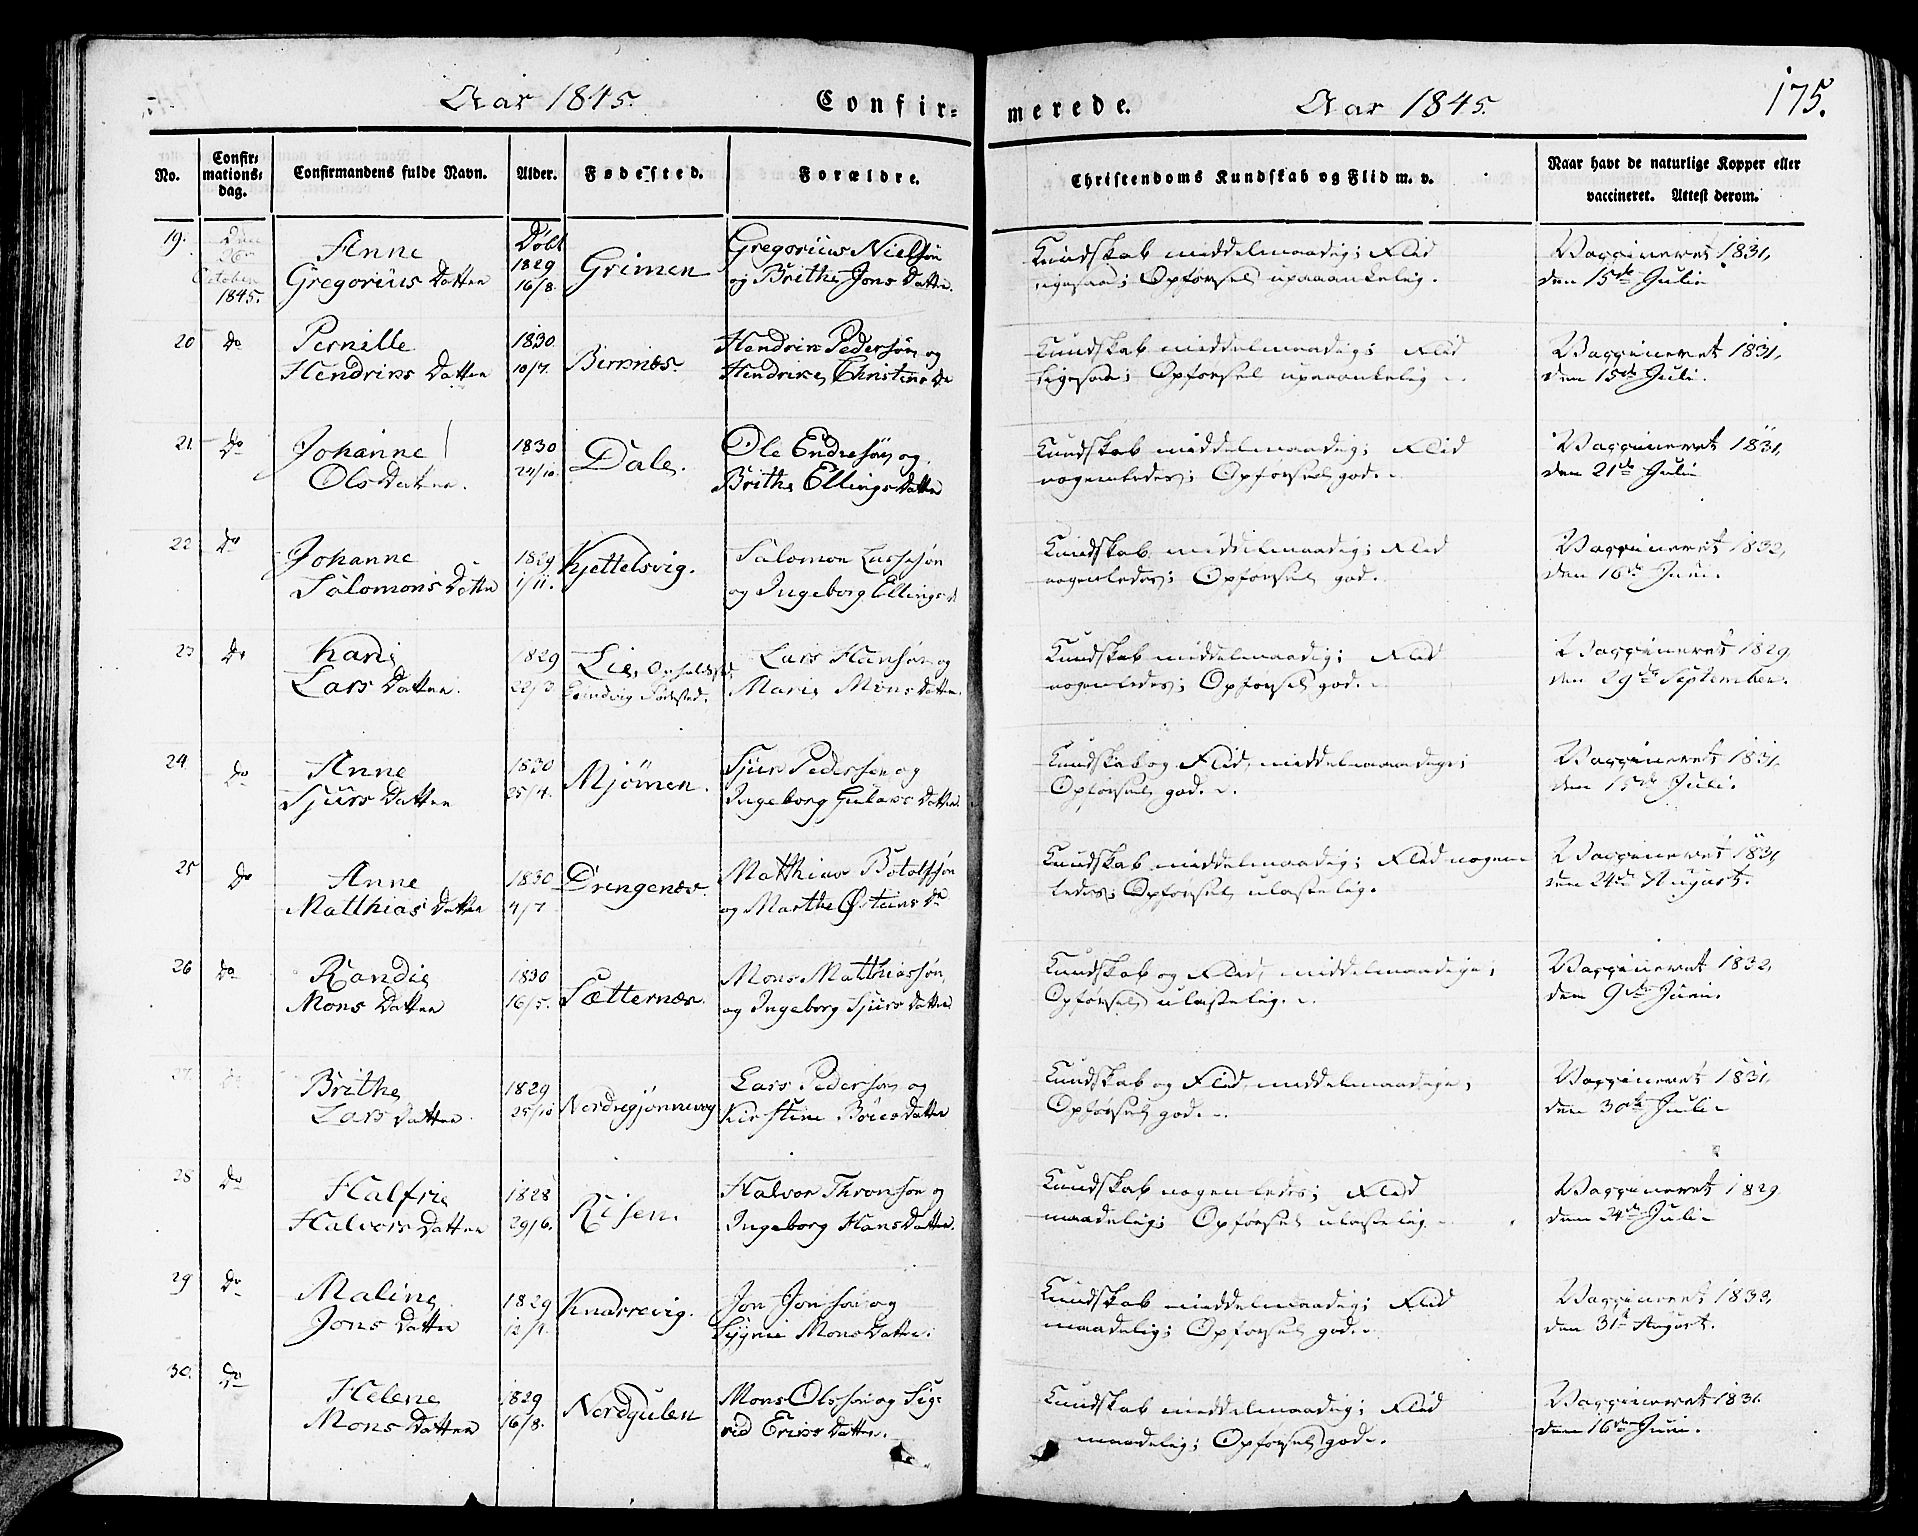 Aar 1845.
Confir-
merede.
Aar 1845.
175.
No.
Confir-
mations-
dag.
Confirmandens fulde Navn.
Alder.
Fødested.
Forældre.
Christendoms Kundskab og Flid m. v.
Naar havt de naturlige Kopper eller
vaccineret. Attest derom.
19.
Den
October
1845.
Anne
Gregorius Datter
Døbt
1829
16/8.
Grimen
Gregorius Nielsøn
og Brithe Jons Datter.
Kundskab middelmaadig; Flid
ligesaa; Opførsel upaaankelig.
Vaxxineret 1831,
den 15de Juli
20
Do
Pernille
Hendriks Datter
1830
10/7.
Birknæs.
Hendrik Pedersøn og
Hendrikke Christens Dr
Kundskab middelmaadig; Flid
ligesaa; Opførsel upaaankelig.
Vaxxineret 1831,
den 15de Juli.
21.
Do
Johanne
Ols Datter.
1830
24/10
Dale.
Ole Endresøn og
Brithe Ellings Datter
Kundskab middelmaadig; Flid
nogenledes; Opførsel god.
Vaxxineret 1831,
den 21de Juli
22
Do
Johanne
Salomons Datter
1829
1/11.
Kjettelsvig.
Salomon Lassesøn
og Ingeborg Ellings d
Kundskab middelmaadig; Flid
nogenledes; Opførsel god.
Vaxxineret 1832,
den 16de Juni.
23
Do
Kari
Lars Datter.
1829
22/3
Lie, Opholdssted,
Fødested.
Lars Hansøn og
Marie Mons Datter.
Kundskab middelmaadig; Flid
nogenledes; Opførsel god.
Vaxxineret 1829
den 29de September.
24
Do
Anne
Sjurs Datter
1830
25/4.
Mjömen.
Sjur Pedersøn og
Ingeborg Gulaks Datter.
Kundskab og Flid, middelmaadige;
Opførsel god.
Vaxxineret 1831,
den 15de Juli.
25
Do
Anne
Matthias Datter
1830
4/7
Drengenæs.
Matthias Botolfsøn
og Marthe Østeins Dr
Kundskab middelmaadig; Flid nogen
ledes; Opførsel ulastelig.
Vaxxineret 1831
den 24de August.
26
Do
Randie
Mons Datter
1830
16/5.
Sætternæs.
Mons Matthiassøn,
og Ingeborg Sjurs Datter
Kundskab og Flid, middelmaadige;
Opførsel ulastelig.
Vaxxineret 1832,
den 9de Juni.
27.
Do
Brithe
Lars Datter.
1829
25/10
Nordregjønnevog
Lars Pedersøn og
Kirstine Böies Datter
Kundskab og Flid, middelmaadige;
Opførsel god.
Vaxxineret 1831,
den 30te Juli
28
Do
Halfrie
Halvors Datter
1828
29/6.
Risen.
Halvor Thronsøn og
Ingeborg Hans Datter.
Kundskab nogenledes; Flid
maadelig; Opførsel ulastelig
Vaxxineret 1829
den 24de Juli
29
Do
Maline
Jons Datter
1829
12/1.
Knarrevig.
Jon Jonsøn og
Mons Datter.
Kundskab middelmaadig; Flid
maadelig; Opførsel god.
Vaxxineret 1833,
den 31te August.
30.
Do
Helene
Mons Datter
1829
16/8.
Nordgulen
Mons Olssøn og Sig-
rid Eriks Datter.
Kundskab middelmaadig; Flid
maadelig; Opførsel god.
Vaxxineret 1831.
den 16de Juni.